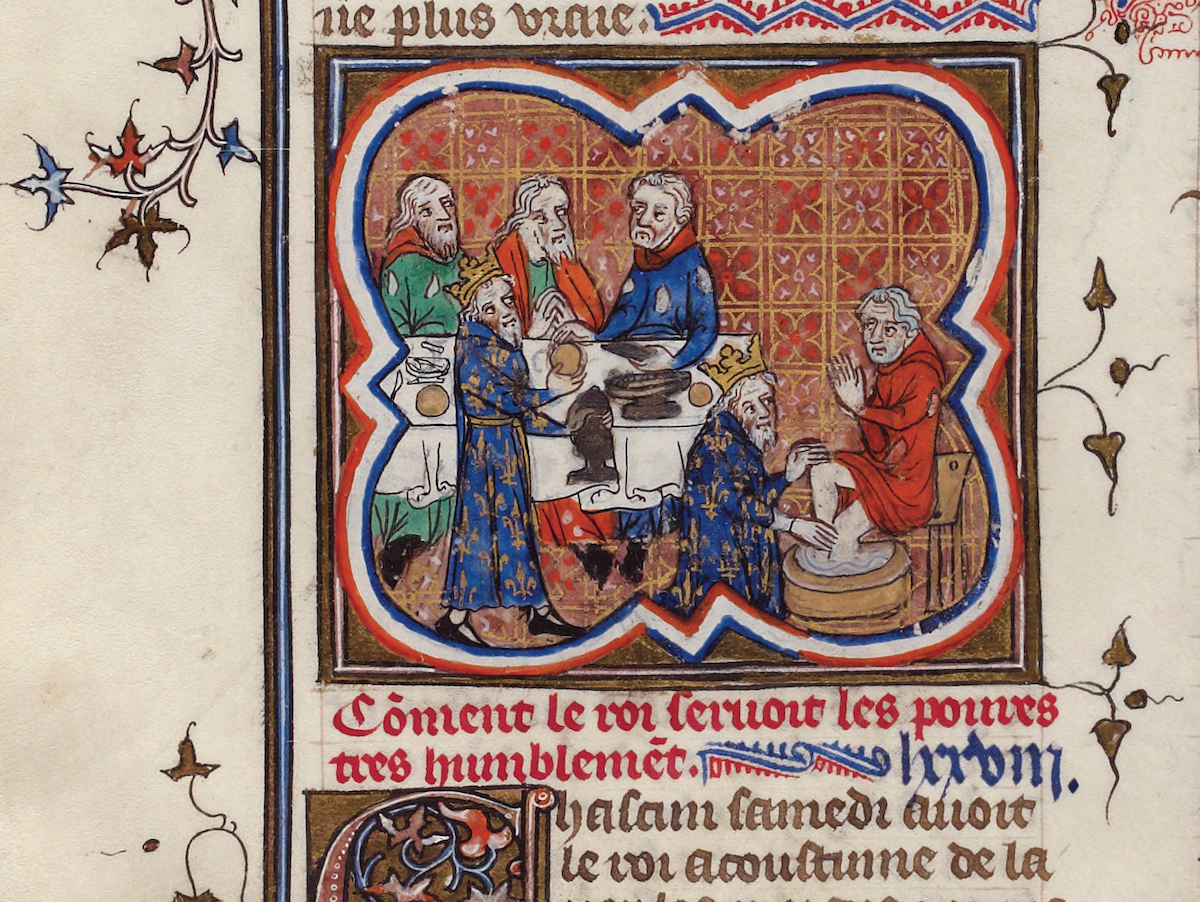 ne plus vraie.
Cōment le roi seruoit les poures
tres humblemēt. lxxviii.
Chascun samedi auoit
le roi acoustume de la